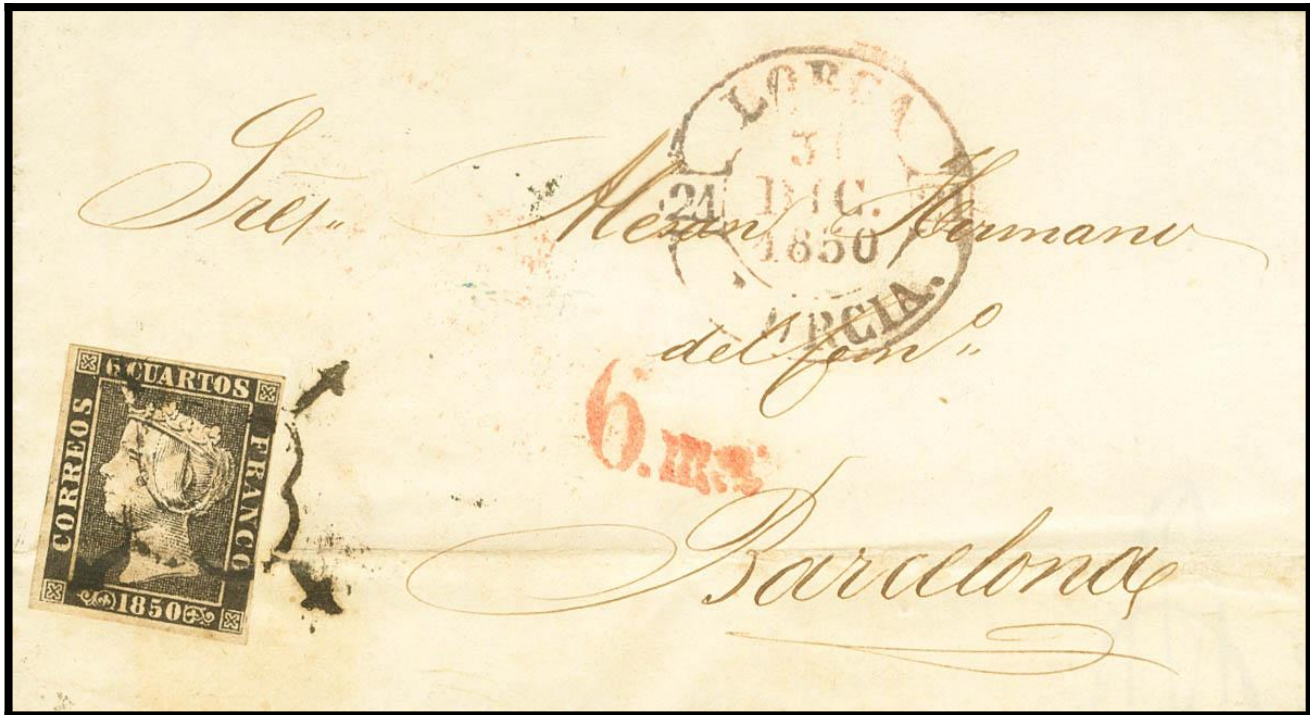 LORCA
3
24 DIC.
1850
MURCIA.
Sres. Hermano
del
6. ms
Barcelona
6 CUARTOS
CORREOS
FRANCO
1850